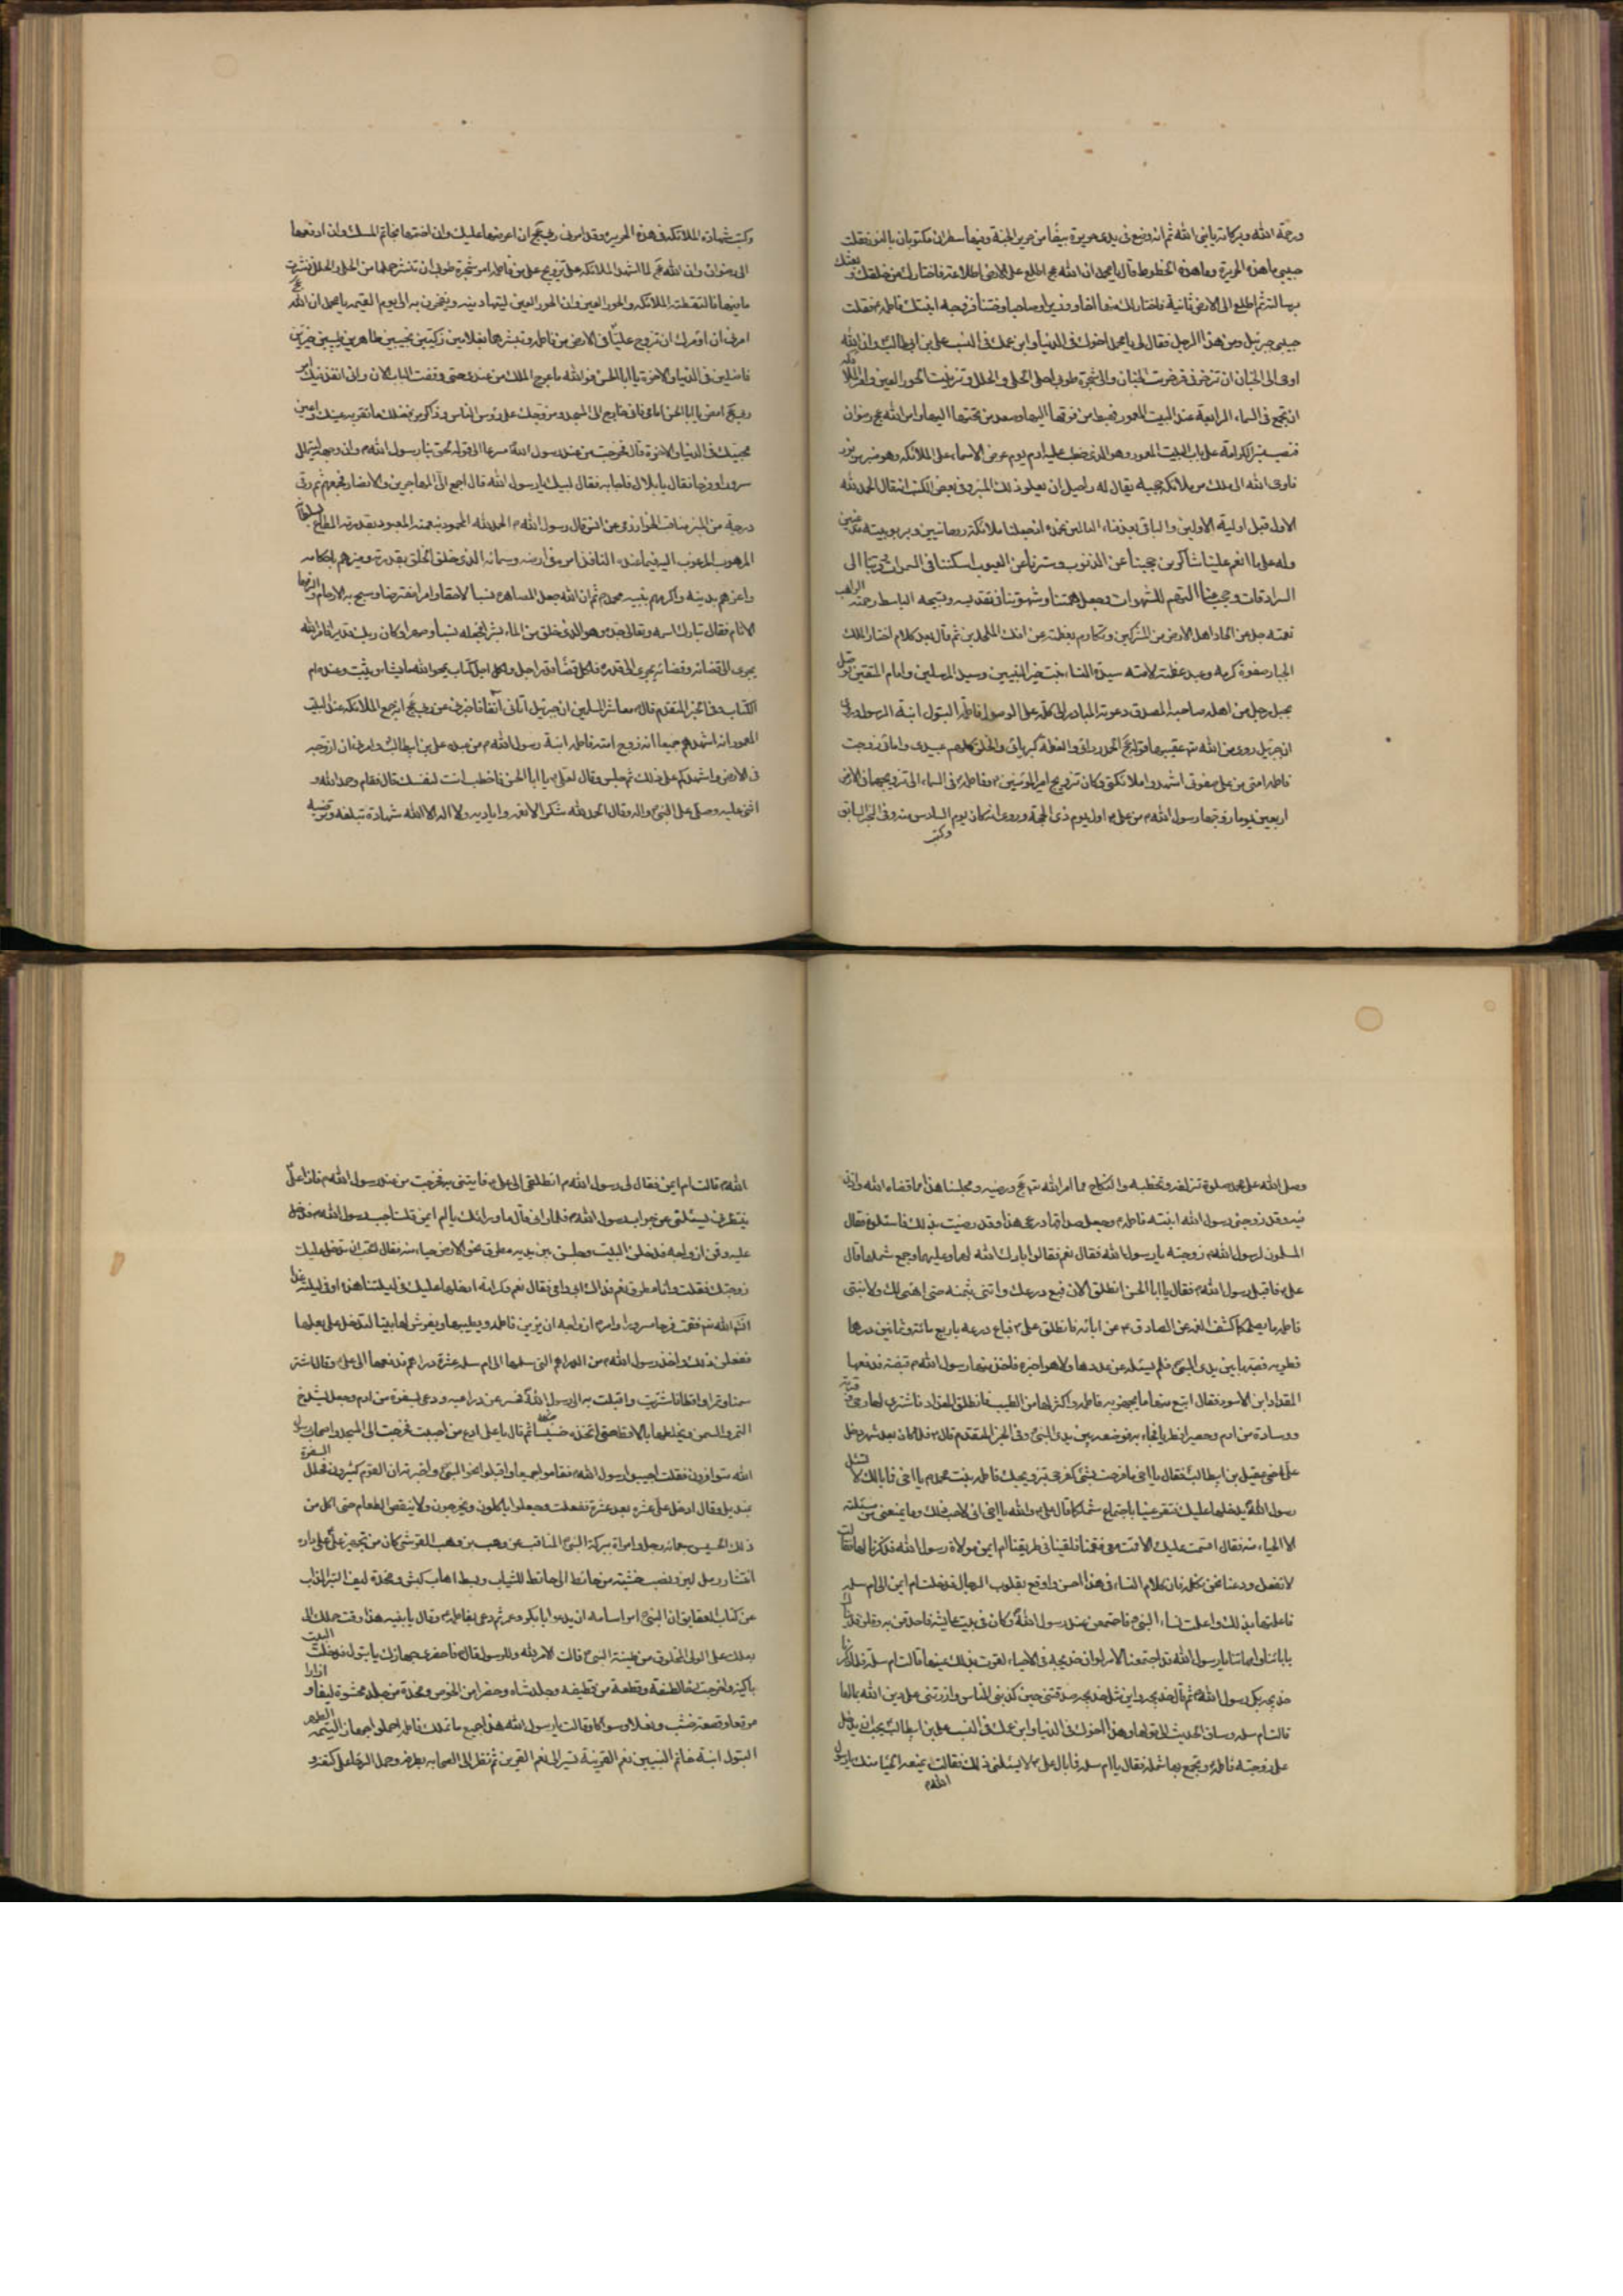 ورحمة الله وبركاته يا نبي الله ثم انه وضع في يدي حريرة بيضاء من حرير الجنة وفيها سطران مكتوبان بالنور فقلت
حبيبي ما هذه الحريرة وما هذه الخطوط قال يا محمد ان الله عج اطلع على الارض اطلاعة فاختارك من خلقه وبعثك
برسالته ثم اطلع الى الارض ثانية فاختار لك منها اخا ووزيرا وصاحبا وختنا فزوجه ابنتك فاطمة فقلت
حبيبي جبرئيل ومن هذا الرجل فقال لي يا محمد اخوك في الدنيا وابن عمك في النسب علي بن ابي طالب وان الله
اوحى الى الجنان ان تزخرفي فزخرفت الجنان والى شجرة طوبى احملي الحلي والحلل وتزينت الحور العين وامر الملائكة
ان تجتمع في السماء الرابعة عند البيت المعمور فهبط من فوقها اليها وصعد من تحتها اليها وامر الله عج رضوان
فنصب منبر الكرامة على باب البيت المعمور وهو الذي خطب عليه ادم يوم عرض الاسماء على الملائكة وهو منبر من نور
فاوحى الله الى ملك من ملائكة حجبه يقال له راحيل ان يعلو ذلك المنبر وفي بعض الكتب انه قال الحمد لله
الاول قبل اولية الاولين والباقي بعد فناء العالمين نحمده اذ جعلنا ملائكة روحانيين وبربوبيته مذعنين
وله على ما انعم علينا شاكرين حجبنا عن الذنوب وسترنا عن العيوب اسكننا في السموات وقربنا الى
السرادقات وحجب عنا النهم للشهوات وجعل نهمتنا وشهوتنا في تقديسه وتسبيحه الباسط رحمته الواهب
نعمته جل عن الحاد اهل الارض من المشركين وتعالى بعظمته عن افك الملحدين ثم قال بعد كلام اختار الملك
الجبار صفوة كرمه وعبد عظمته لامته سيدة النساء بنت خير النبيين وسيد المرسلين وامام المتقين فوصل
حبله بحبل رجل من اهله صاحبه المصدق دعوته المبادر الى كلمته علي الوصول بفاطمة البتول ابنة الرسول وروي
ان جبرئيل روى عن الله تع عقيبها قوله عج الحمد ردائي والعظمة كبريائي والخلق كلهم عبيدي وامائي زوجت
فاطمة امتي من علي صفوتي اشهدوا ملائكتي وكان تزويج امير المؤمنين وفاطمة في السماء الى تزويجهما في الارض
اربعين يوما زوجها رسول الله من علي اول يوم ذي الحجة وروي انه كان يوم السادس منه وفي الخبر السابق
وكتب
وكتب شهادة الملائكة في هذه الحريرة وقد امرني ربي عج ان اعرضها عليك وان اختمها بخاتم المسك وان ادفعها
الى رضوان وان الله عج لما اشهد الملائكة على تزويج علي من فاطمة امر شجرة طوبى ان تنثر حملها من الحلي والحلل فنثرت
ما فيها فالتقطته الملائكة والحور العين وان الحور العين ليتهادينه ويفخرن به الى يوم القيمة يا محمد ان الله عج
امرني ان آمرك ان تزوج عليا في الارض من فاطمة وتبشرهما بغلامين زكيين نجيبين طاهرين طيبين خيرين
فاضلين في الدنيا والاخرة يا ابا الحسن فوالله ما عرج الملك من عندي حتى وقفت الباب الان واني انفذ فيك امر
ربي عج امض يا ابا الحسن امامي فاني خارج الى المسجد ومزوجك على رؤس الناس وذاكر من فضلك ما تقر به عينك واعين
محبيك في الدنيا والاخرة قال فخرجت من عند رسول الله مسرعا الى قوله لحق بنا رسول الله وان وجهه ليتهلل
سرورا وفرحا فقال يا بلال فاجابه فقال لبيك يا رسول الله قال اجمع الي المهاجرين والانصار فجمعهم ثم رقى
درجة من المنبر مناقب الخوارزمي عن انس قال رسول الله الحمد لله المحمود بنعمته المعبود بقدرته المطاع بسلطانه
المرهوب المرغوب اليه فيما عنده النافذ امره في ارضه وسمائه الذي خلق الخلق بقدرته وميزهم باحكامه
واعزهم بدينه واكرمهم بنبيه محمد ثم ان الله جعل المصاهرة نسبا لاحقا وامرا مفترضا وشج به الارحام والزمها
الانام فقال تبارك اسمه وتعالى جده وهو الذي خلق من الماء بشرا فجعله نسبا وصهرا وكان ربك قديرا فامر الله
يجري الى قضائه وقضاؤه يجري الى قدره فلكل قضاء قدر اجل ولكل اجل كتاب يمحو الله ما يشاء ويثبت وعنده ام
الكتاب وفي الخبر المتقدم قال معاشر المسلمين ان جبرئيل اتاني آنفا فاخبرني عن ربي عج انه جمع الملائكة عند البيت
المعمور انه اشهدهم جميعا انه زوج امته فاطمة ابنة رسول الله من عبده علي بن ابي طالب وامرني ان ازوجه
في الارض واشهدكم على ذلك ثم جلس وقال لعلي يا ابا الحسن فاخطب انت لنفسك قال فقام وحمد الله و
اثنى عليه وصلى على النبي واله وقال الحمد لله شكرا لانعمه واياديه ولا اله الا الله شهادة تبلغه وترضيه
وصلى الله على محمد صلوة تزلفه وتحظيه والنكاح مما امر الله تع عج ورضيه ومجلسنا هذا مما قضاه الله واذن
فيه وقد زوجني رسول الله ابنته فاطمة وجعل صداقها درعي هذا وقد رضيت بذلك فاسئلوه فقال
المسلمون لرسول الله زوجته يا رسول الله فقال نعم فقالوا بارك الله لهما وعليهما وجمع شملهما قال
علي فاقبل رسول الله فقال يا ابا الحسن انطلق الان فبع درعك وائتني بثمنه حتى اهيئ لك ولابنتي
فاطمة ما يصلحكما كشف الغمة عن الصادق ع عن ابائه فانطلق علي فباع درعه باربع مائة وثمانين درهما
قطرية فصبها بين يدي النبي فلم يسئله عن عددها ولا هو اخبره فاخذ منها رسول الله قبضة فدفعها
المقداد ابن الاسود فقال ابتع منها ما يجهز به فاطمة واكثر لها من الطيب فانطلق المقداد فاشترى لها رحى وقربة
ووسادة من ادم وحصيرا قطريا فجاء به فوضعه بين يدي النبي وفي الخبر المتقدم قال فلما كان بعد شهر دخل
علي اخي عقيل بن ابي طالب فقال يا اخي ما فرحت بشيء كفرحي بتزويجك فاطمة بنت محمد يا اخي فما بالك لا تسئل
رسول الله يدخلها عليك فتقر عينا باجتماع شملكما قال علي والله يا اخي اني لاحب ذلك وما يمنعني من مسئلته
الا الحياء منه فقال اقسمت عليك الا قمت معي فقمنا فلقينا في طريقنا ام ايمن مولاة رسول الله فذكرنا لها فقالت
لا تفعل ودعنا نحن نكلمه فان كلام النساء في هذا احسن واوقع بقلوب الرجال فدخلت ام ايمن الى ام سلمة
فاعلمتها بذلك واعلمت نساء النبي فاجتمعن عند رسول الله وكان في بيت عايشة فاحدقن به وقلن فديناك
بابائنا وامهاتنا يا رسول الله قد اجتمعنا لامر لو ان خديجة في الاحياء لقرت بذلك عينها قالت ام سلمة فلما ذكرنا
خديجة بكى رسول الله ثم قال خديجة واين مثل خديجة صدقتني حين كذبني الناس وازرتني على دين الله بمالها
قالت ام سلمة وساق الحديث الى قولها وهذا اخوك في الدنيا وابن عمك في النسب علي بن ابي طالب يحب ان يدخل
على زوجته فاطمة وتجمع بها شمله فقال يا ام سلمة فما بال علي لا يسئلني ذلك فقالت يمنعه الحياء منك يا رسول
الله
الله قالت ام ايمن فقال لي رسول الله انطلقي الى علي فايتيني به فخرجت من عند رسول الله فاذا علي
ينتظرني ليسئلني عن جواب رسول الله فلما راني قال ما وراءك يا ام ايمن قلت اجب رسول الله فدخل
عليه وقمن ازواجه فدخلن البيت وجلس بين يديه مطرق نحو الارض حياء منه فقال اتحب ان تدخل عليك
زوجتك فقلت وانا مطرق نعم فداك ابي وامي فقال نعم وكرامة ادخلها عليك في ليلتنا هذه او في ليلة غد
انشاء الله تع فقمت فرحا مسرورا وامر ازواجه ان يزين فاطمة ويطيبها ويفرش لها بيتا لتدخل على بعلها
ففعلن ذلك واخذ رسول الله من الدراهم التي سلمها الى ام سلمة عشرة دراهم فدفعها الى علي وقال اشتر
سمنا وتمرا واقطا فاشتريت واقبلت به الى رسول الله فحسر عن ذراعيه ودعى بسفرة من ادم وجعل يشدخ
التمر والسمن ويخلطها بالاقط حتى اتخذه حيسا ثم قال يا علي ادع من احببت فخرجت الى المسجد واصحاب رسول
الله متوافرون فقلت اجيبوا رسول الله فقاموا جميعا واقبلوا نحو النبي واخبرته ان القوم كثيرون فجلل السفرة
بمنديل وقال ادخل علي عشرة بعد عشرة ففعلت وجعلوا ياكلون ويخرجون ولا ينقص الطعام حتى اكل من
ذلك الحيس سبعمائة رجل وامراة ببركة النبي المناقب عن وهب بن وهب القرشي كان من تجهيز علي داره
انتشار رمل لين ونصب خشبة من حائط الى حائط للثياب وبسط اهاب كبش ومخدة ليف
عن كتاب ان النبي امر اسامة ان يدعو ابا بكر وعمر ثم دعى بفاطمة وقال يا بنية هذا وقت حملك الى
بعلك علي قالت الامر لله وللرسول قال فاحضري جهازك يا بتول فدخلت البيت
باكية واخرجت وقطعة من قطيفة وجلد شاة وحصرا من الخوص ومخدة من جلد محشوة ليفا و ازارا
مرقعا وقصعة خشب ونعلا وسواكا وقالت يا رسول الله هذا جميع ما تملك فاطمة احملوا جهاز اليتيمة الطهر
البتول ابنة خاتم النبيين نعم القرينة تسير الى نعم القرين ثم نظر الى الصحابة بطرفه وحمل الرحا على كتفه و